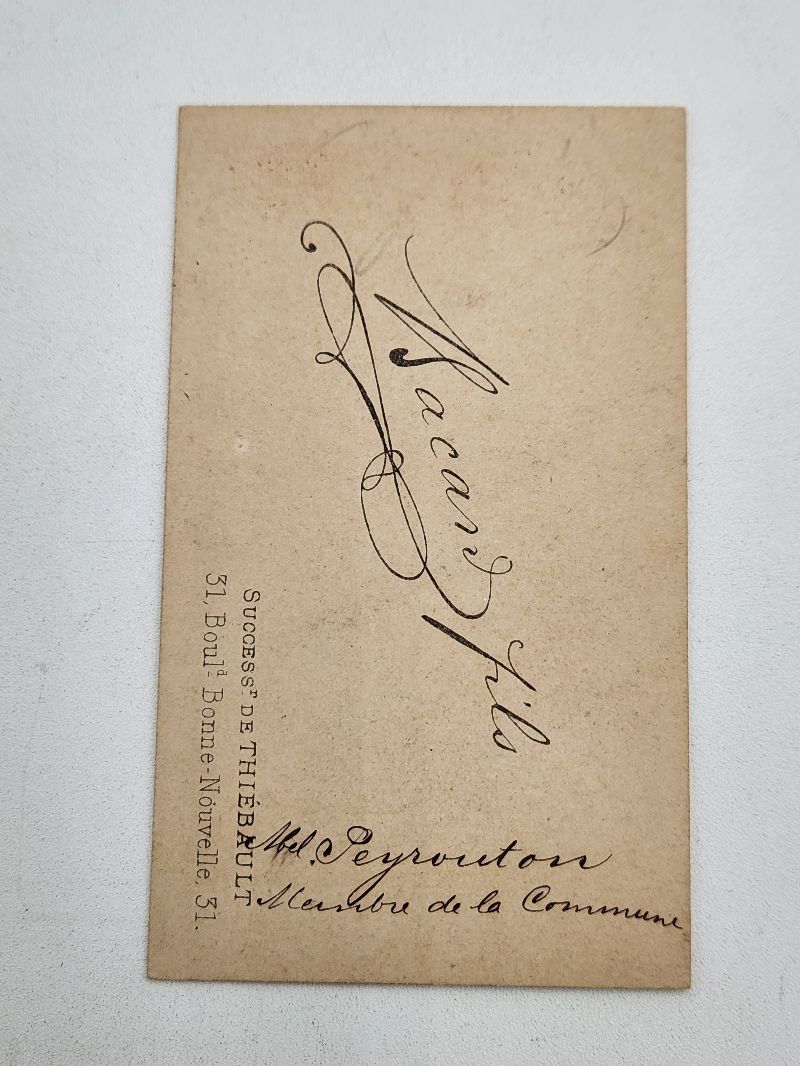 Bacard fils
SUCCESSr. DE THIÉBAULT
31, Bould Bonne-Nouvelle, 31.
Abel. Peyrouton
Membre de la Commune